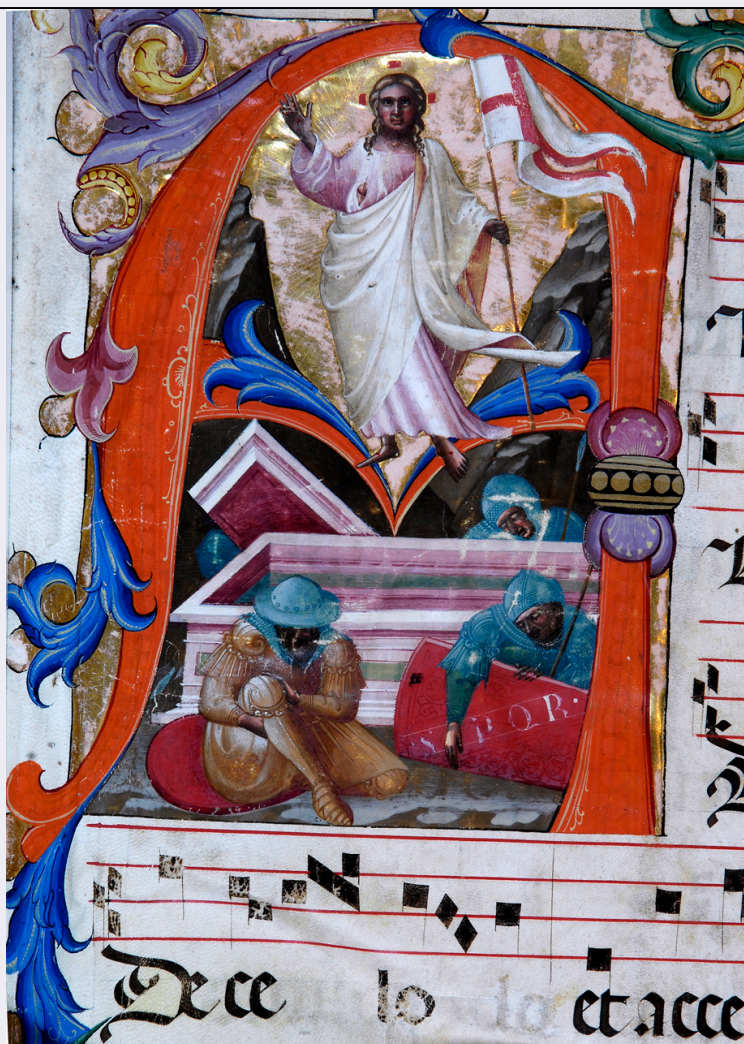 S. P. Q. R.
De ce lo et acce